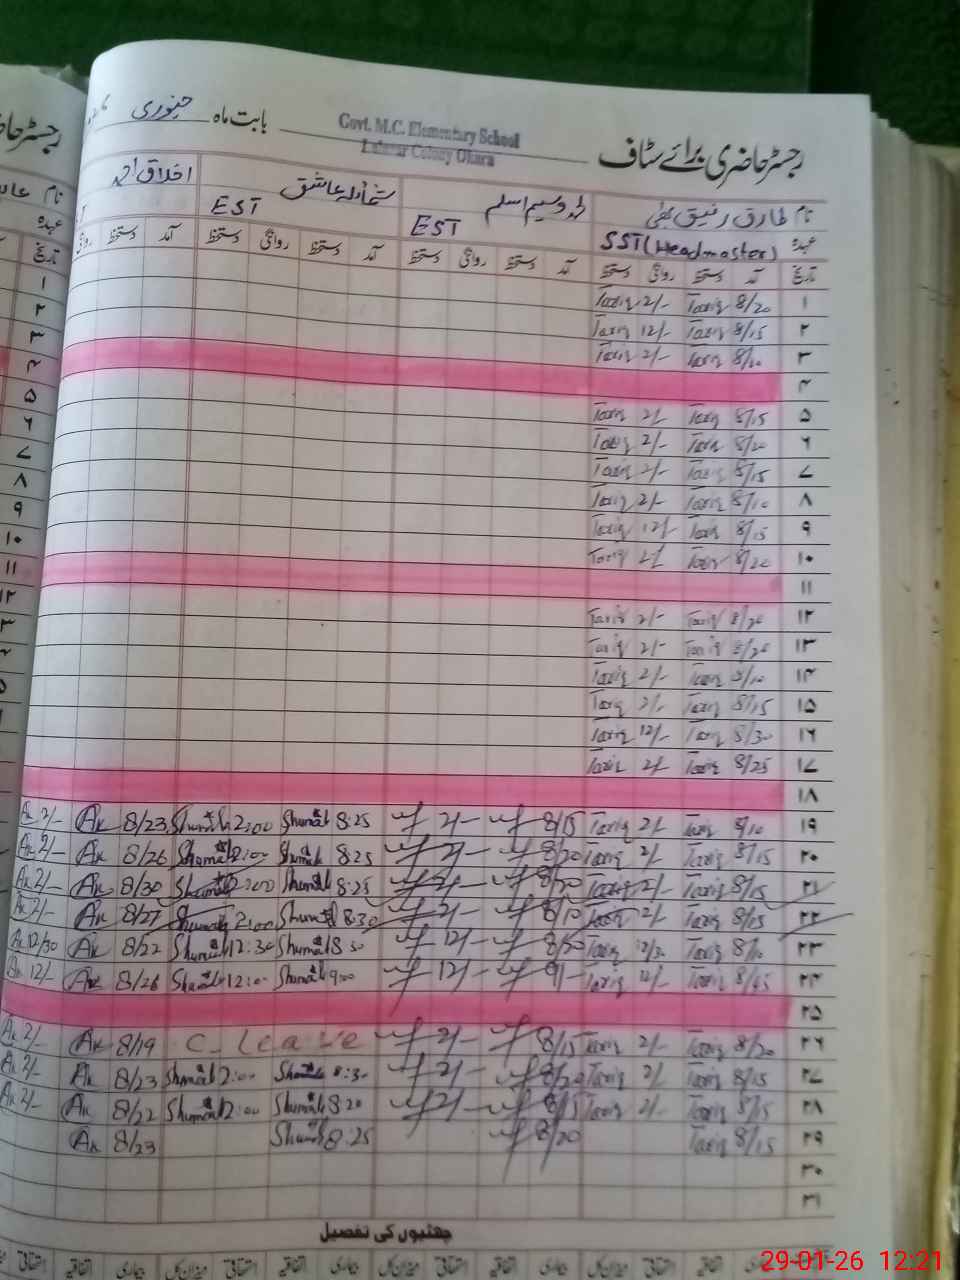 رجسٹر حاضری برائے سٹاف
Govt. M.C. Elementary School
Lalazar Colony Okara
بابت ماہ جنوری
نام طارق رفیق بھٹی وسیم اسلم شمائلہ عاشق اخلاق
عہدہ SST (Headmaster) EST EST
تاریخ آمد دستخط روانگی دستخط آمد دستخط روانگی دستخط آمد دستخط روانگی دستخط آمد
۱ 8/20 Tariq 2/- Tariq
۲ 8/15 Tariq 12/- Tariq
۳ Tariq 2/- Tariq
۴
۵ 8/15 Tariq 2/- Tariq
۶ 8/20 Tariq 2/- Tariq
۷ 8/15 Tariq 2/- Tariq
۸ 8/10 Tariq 2/- Tariq
۹ 8/15 Tariq 12/- Tariq
۱۰ 8/20 Tariq 2/- Tariq
۱۱
۱۲ Tariq 2/- Tariq
۱۳ Tariq 2/- Tariq
۱۴ 8/10 Tariq 2/- Tariq
۱۵ 8/15 Tariq 2/- Tariq
۱۶ 8/30 Tariq 12/- Tariq
۱۷ 8/25 Tariq 2/- Tariq
۱۸
۱۹ 8/10 Tariq 2/- Tariq 8/15 2/- 8:25 Shumail 2:00 Shumail 8/23 Ak 2/- Ak
۲۰ 8/15 Tariq 2/- Tariq 8/20 2/- 8:25 Shumail 2:00 Shumail 8/26 Ak 2/- Ak
۲۱ 8/15 Tariq 2/- Tariq 8/20 2/- 8:25 Shumail 2:00 Shumail 8/30 Ak 2/- Ak
۲۲ 8/15 Tariq 2/- Tariq 8/10 2/- 8:30 Shumail 2:00 Shumail 8/27 Ak 2/- Ak
۲۳ 8/10 Tariq 12/30 Tariq 8/20 12/- 8:30 Shumail 12:30 Shumail 8/22 Ak 12/30 Ak
۲۴ 8/45 Tariq 12/- Tariq 9/- 12/- 9:00 Shumail 12:00 Shumail 8/26 Ak 12/- Ak
۲۵
۲۶ 8/20 Tariq 2/- Tariq 8/15 2/- C. leave 8/19 Ak 2/- Ak
۲۷ 8/15 Tariq 2/- Tariq 8/20 2/- 8:30 Shumail 2:00 Shumail 8/23 Ak 2/- Ak
۲۸ 8/15 Tariq 2/- Tariq 8/15 2/- 8:20 Shumail 2:00 Shumail 8/22 Ak 2/- Ak
۲۹ 8/15 Tariq 8/20 8:25 Shumail 8/23 Ak
۳۰
۳۱
چھٹیوں کی تفصیل
بیماری اتفاقیہ استحقاقی میزان کل بیماری اتفاقیہ استحقاقی میزان کل بیماری اتفاقیہ استحقاقی میزان کل بیماری اتفاقیہ استحقاقی
29-01-26 12:21